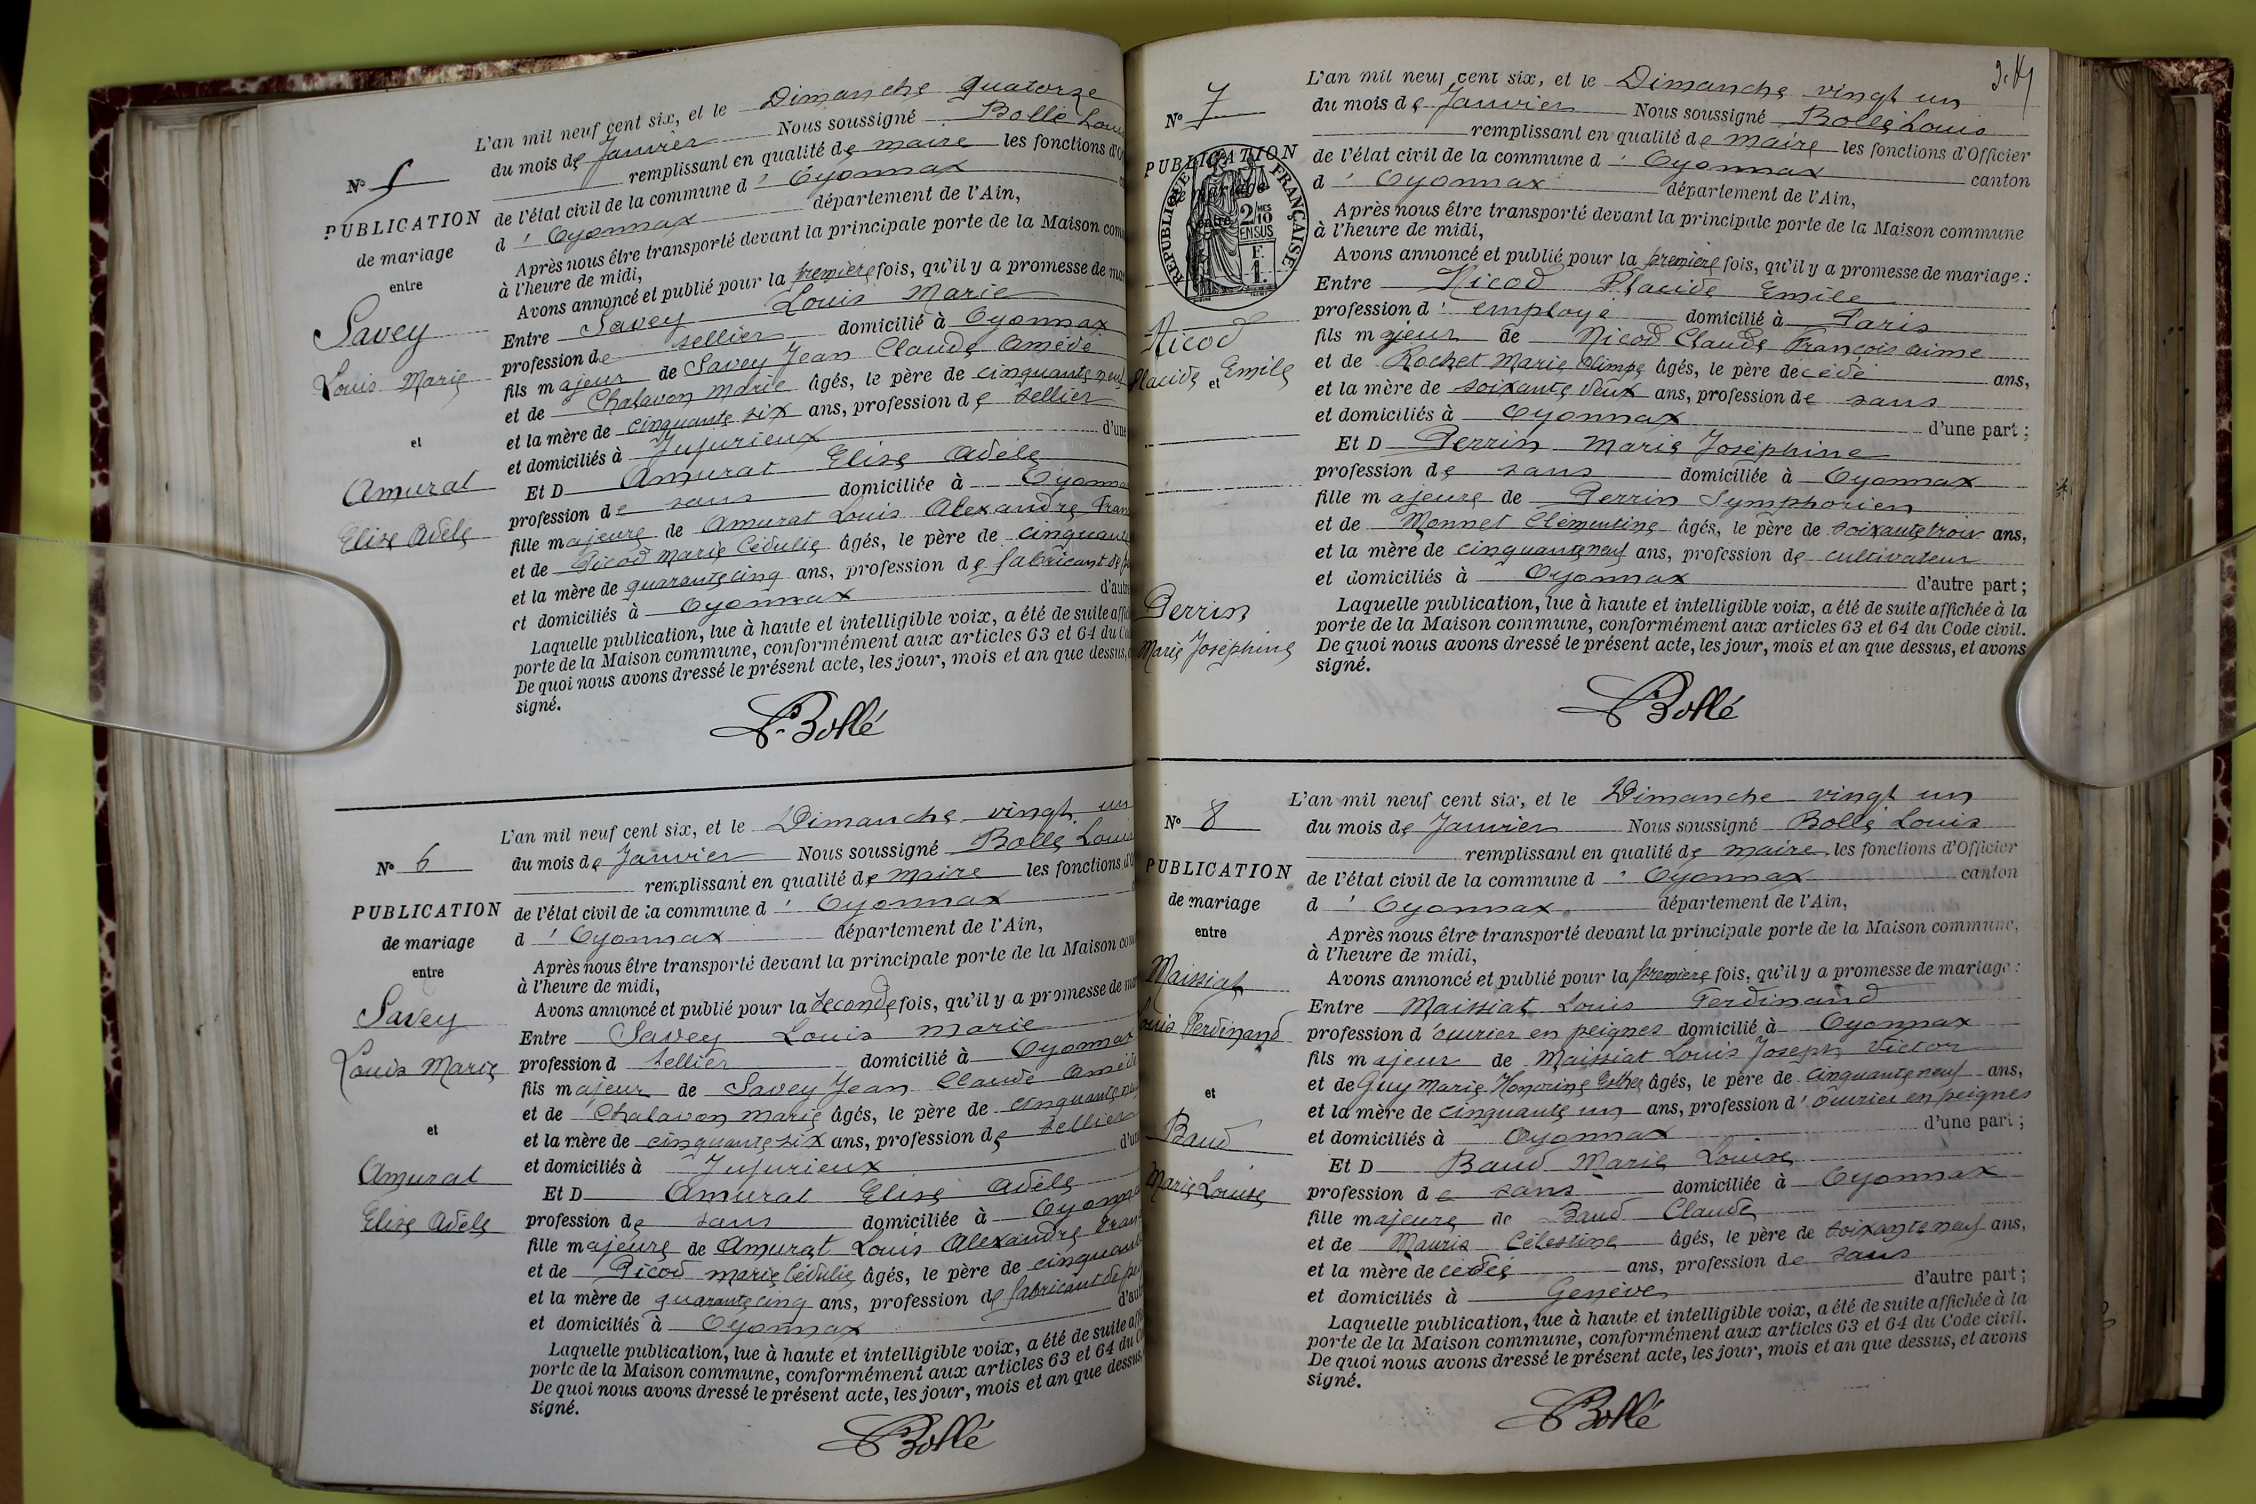 N° 5
PUBLICATION
de mariage
entre
Savey
Louis Marie
et
Amurat
Elise Adèle
L'an mil neuf cent six, et le Dimanche quatorze
du mois de Janvier Nous soussigné Bollé Louis
remplissant en qualité de maire les fonctions d'O
de l'état civil de la commune d' Oyonnax
d' Oyonnax département de l'Ain,
Après nous être transporté devant la principale porte de la Maison com
à l'heure de midi,
Avons annoncé et publié pour la première fois, qu'il y a promesse de mar
Entre Savey Louis Marie
profession de sellier domicilié à Oyonnax
fils majeur de Savey Jean Claude Amédé
et de Chalavon Marie âgés, le père de cinquante neuf
et la mère de cinquante six ans, profession de sellier
et domiciliés à Jujurieux d'une
Et D Amurat Elise Adèle
profession de sans domiciliée à Oyonna
fille majeure de Amurat Louis Alexandre Fran
et de Picod Marie Cédulie âgés, le père de cinquante
et la mère de quarante cinq ans, profession de fabricant de pe
et domiciliés à Oyonnax d'autre
Laquelle publication, lue à haute et intelligible voix, a été de suite affic
porte de la Maison commune, conformément aux articles 63 et 64 du Co
De quoi nous avons dressé le présent acte, les jour, mois et an que dessus,
signé.
L. Bollé
N° 6
PUBLICATION
de mariage
entre
Savey
Louis Marie
et
Amurat
Elise Adèle
L'an mil neuf cent six, et le Dimanche vingt un
du mois de Janvier Nous soussigné Bollé Louis
remplissant en qualité de maire les fonctions d'O
de l'état civil de la commune d' Oyonnax
d' Oyonnax département de l'Ain,
Après nous être transporté devant la principale porte de la Maison com
à l'heure de midi,
Avons annoncé et publié pour la seconde fois, qu'il y a promesse de mar
Entre Savey Louis Marie
profession d sellier domicilié à Oyonnax
fils majeur de Savey Jean Claude Amédé
et de Chalavon Marie âgés, le père de cinquante ne
et la mère de cinquante six ans, profession de sellier
et domiciliés à Jujurieux d'un
Et D Amurat Elise Adèle
profession de sans domiciliée à Oyonna
fille majeure de Amurat Louis Alexandre Fran
et de Picod Marie Cédulie âgés, le père de cinquante
et la mère de quarante cinq ans, profession de fabricant de pe
et domiciliés à Oyonnax d'aut
Laquelle publication, lue à haute et intelligible voix, a été de suite aff
porte de la Maison commune, conformément aux articles 63 et 64 du C
De quoi nous avons dressé le présent acte, les jour, mois et an que dessus,
signé.
L Bollé
N° 7
PUBLICATION
de mariage
entre
RÉPUBLIQUE FRANÇAISE
2/10 MES
EN SUS
F.
1.
Nicod
Placide Emile
et
Perrin
Marie Joséphine
L'an mil neuf cent six, et le Dimanche vingt un
du mois de Janvier Nous soussigné Bollé Louis
remplissant en qualité de maire les fonctions d'Officier
de l'état civil de la commune d' Oyonnax canton
d' Oyonnax département de l'Ain,
Après nous être transporté devant la principale porte de la Maison commune
à l'heure de midi,
Avons annoncé et publié pour la première fois, qu'il y a promesse de mariage :
Entre Nicod Placide Emile
profession d' employé domicilié à Paris
fils majeur de Nicod Claude François aimé
et de Rochet Marie Olimpe âgés, le père decédé ans,
et la mère de soixante deux ans, profession de sans
et domiciliés à Oyonnax d'une part ;
Et D Perrin Marie Joséphine
profession de sans domiciliée à Oyonnax
fille majeure de Perrin Symphorien
et de Monnet Clémentine âgés, le père de soixante trois ans,
et la mère de cinquante neuf ans, profession de cultivateur
et domiciliés à Oyonnax d'autre part ;
Laquelle publication, lue à haute et intelligible voix, a été de suite affichée à la
porte de la Maison commune, conformément aux articles 63 et 64 du Code civil.
De quoi nous avons dressé le présent acte, les jour, mois et an que dessus, et avons
signé.
L Bollé
N° 8
PUBLICATION
de mariage
entre
Maissiat
Louis Ferdinand
et
Baud
Marie Louise
L'an mil neuf cent six, et le Dimanche vingt un
du mois de Janvier Nous soussigné Bollé Louis
remplissant en qualité de maire les fonctions d'Officier
de l'état civil de la commune d' Oyonnax canton
d' Oyonnax département de l'Ain,
Après nous être transporté devant la principale porte de la Maison commune,
à l'heure de midi,
Avons annoncé et publié pour la première fois, qu'il y a promesse de mariage :
Entre Maissiat Louis Ferdinand
profession d'ouvrier en peignes domicilié à Oyonnax
fils majeur de Maissiat Louis Joseph Victor
et de Guy Marie Honorine Esther âgés, le père de cinquante neuf ans,
et la mère de cinquante un ans, profession d' ouvrier en peignes
et domiciliés à Oyonnax d'une part ;
Et D Baud Marie Louise
profession de sans domiciliée à Oyonnax
fille majeure de Baud Claude
et de Mauris Célestine âgés, le père de soixante neuf ans,
et la mère decédée ans, profession de sans
et domiciliés à Genève d'autre part ;
Laquelle publication, lue à haute et intelligible voix, a été de suite affichée à la
porte de la Maison commune, conformément aux articles 63 et 64 du Code civil.
De quoi nous avons dressé le présent acte, les jour, mois et an que dessus, et avons
signé.
L Bollé